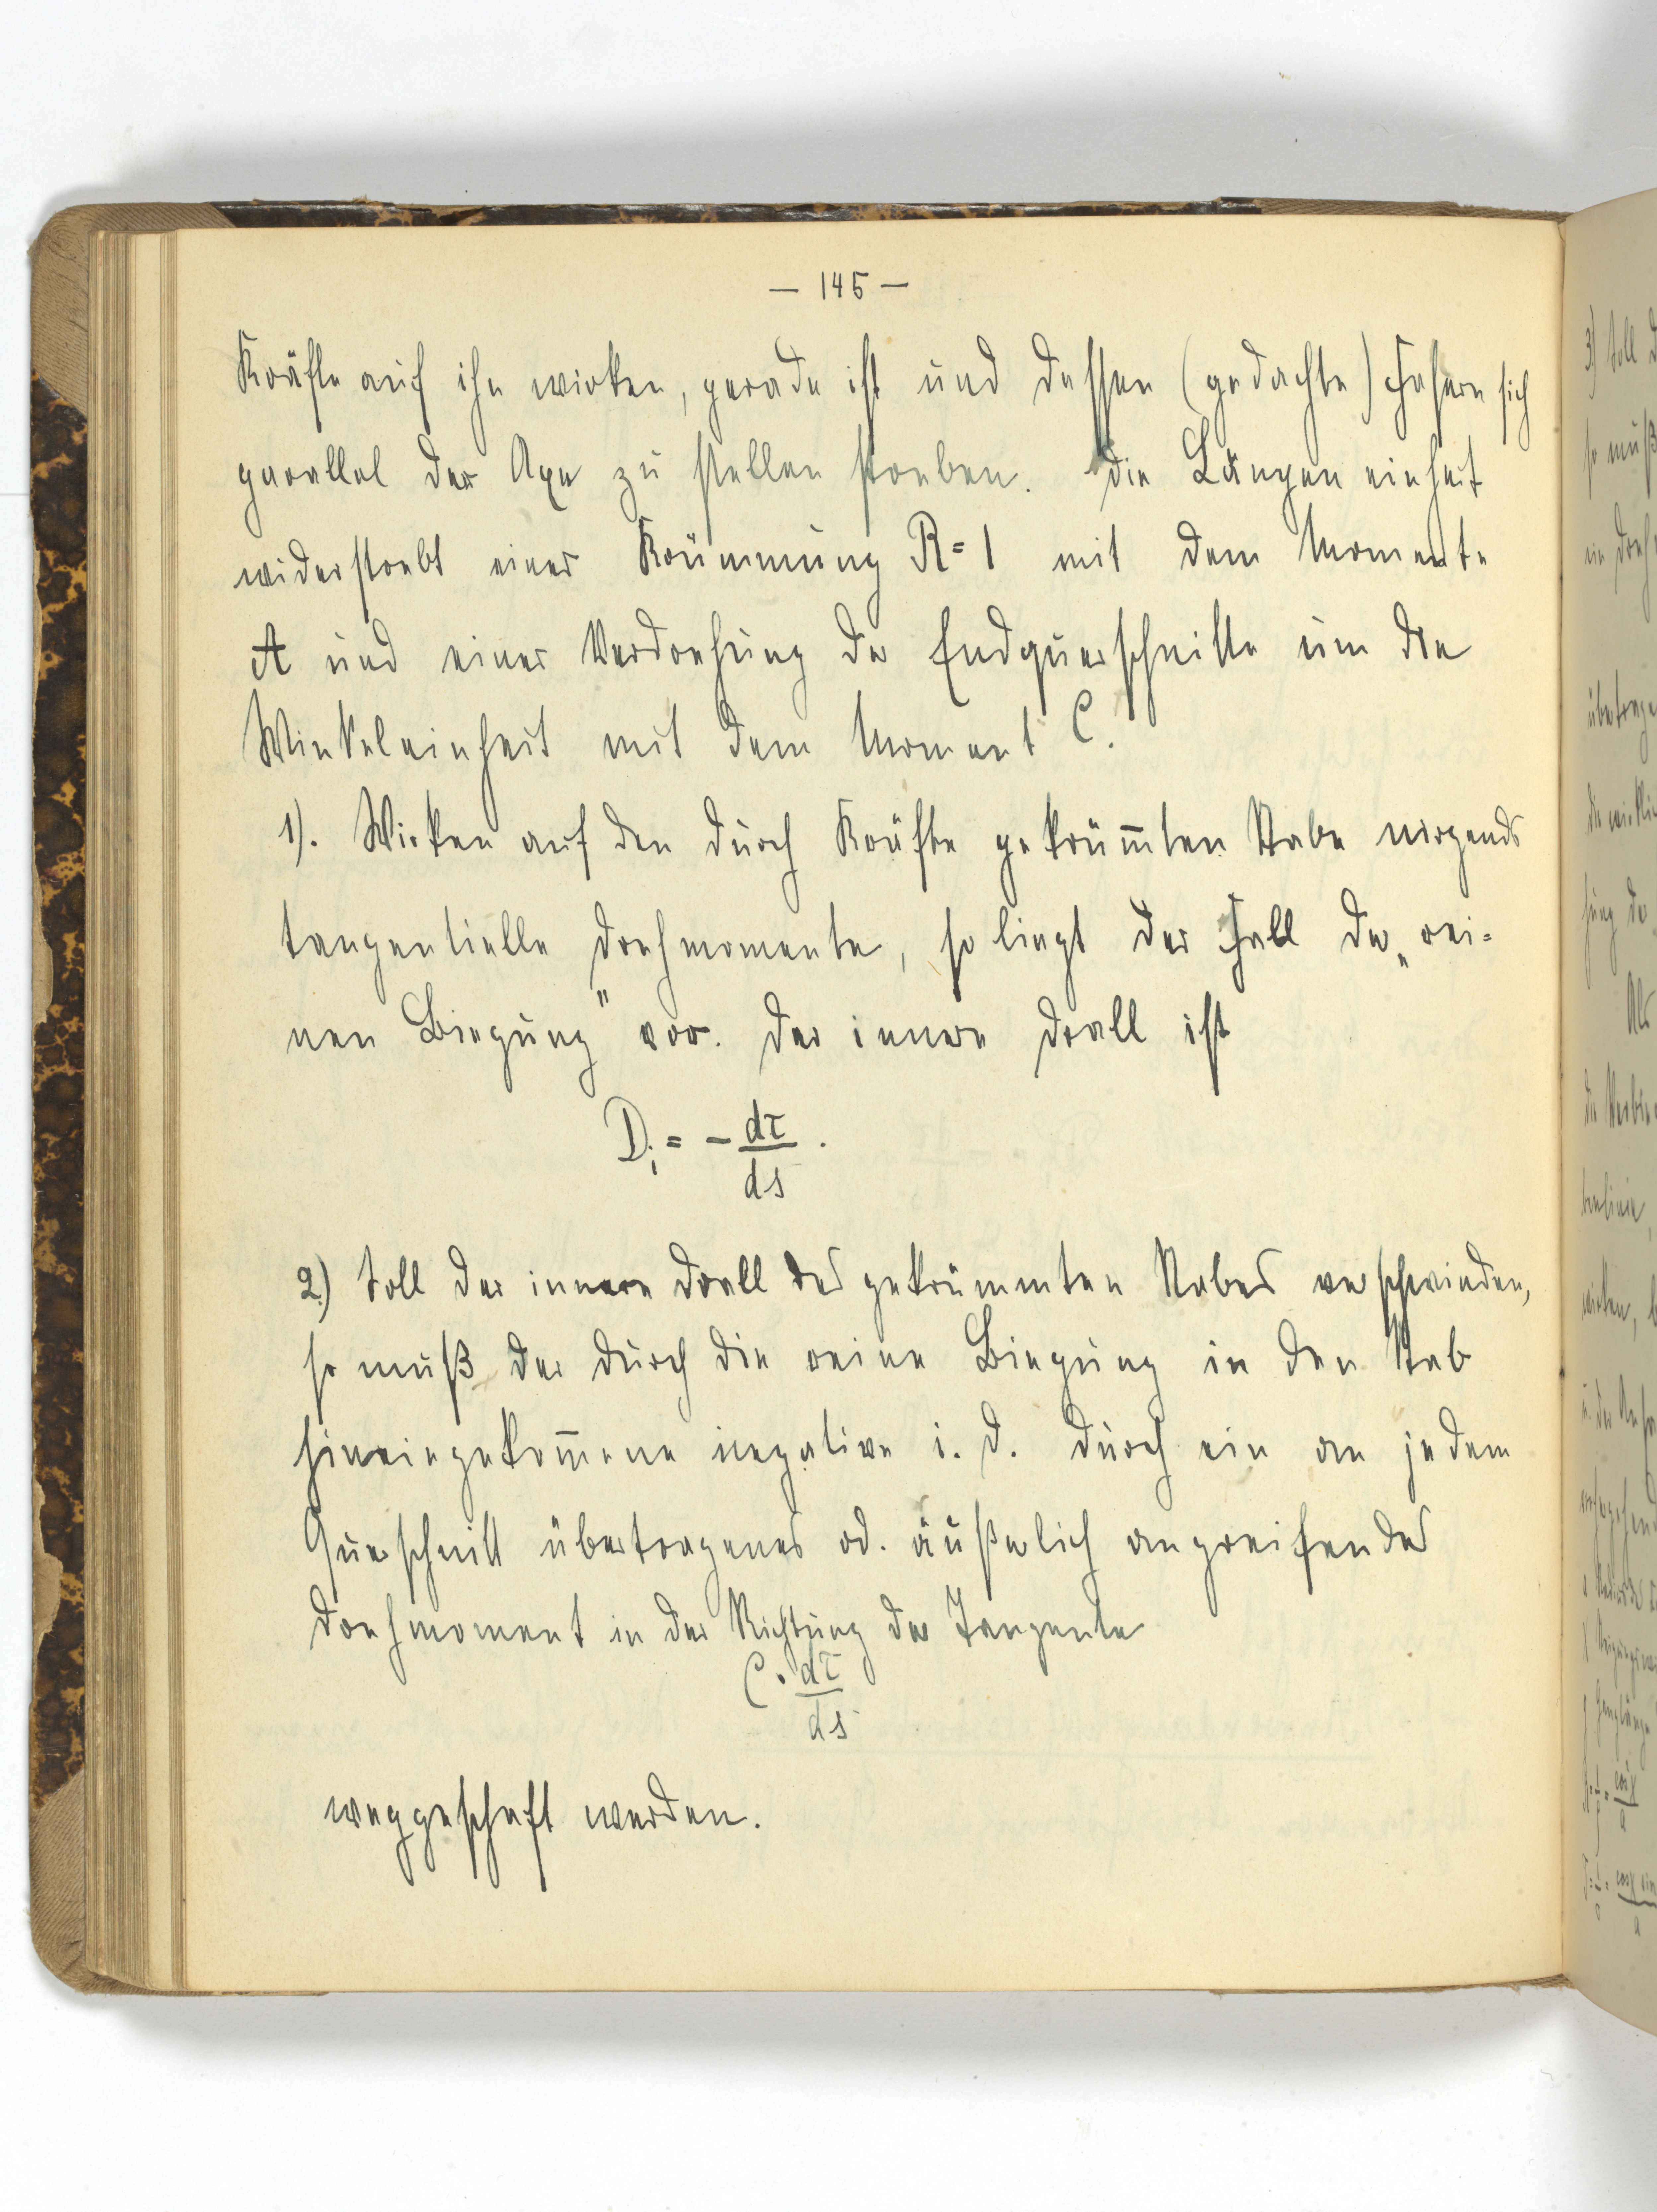 — 145 —
Kräfte auf ihn wirken, gerade ist und dessen (gedachte) Fasern sich
parallel der Axe zu stellen streben. Die Längeneinheit
widerstrebt einer Krümmung R = 1 mit dem Momente
A und einer Verdrehung der Endquerschnitte um die
Winkeleinheit mit dem Moment C.
1). Wirken auf den durch Kräfte gekrüm̄ten Stabe nirgends
tangentielle Drehmomente, so liegt der Fall der „rei-
nen Biegung" vor. Der innere Drall ist
Di = - dτ/ds.
2.) Soll der innere Drall des gekrümmten Stabes verschwinden,
so muß der durch die reine Biegung in den Stab
hineingekom̄ene negative i. D. durch ein an jedem
Querschnitt übertragenes od. äußerlich angreifendes
Drehmoment in der Richtung der Tangente
C · dτ/ds
weggeschaft werden.